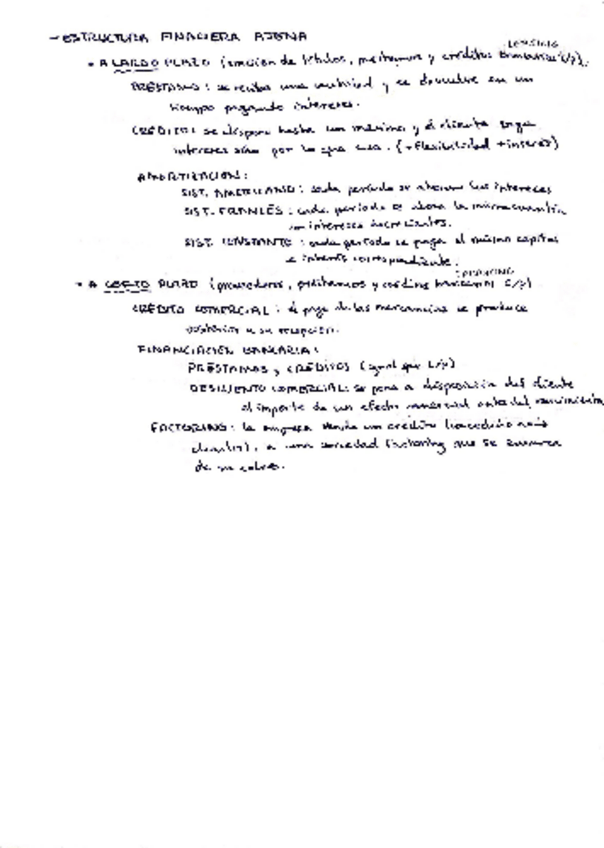 - ESTRUCTURA FINANCIERA AJENA
LEASING
• A LARGO PLAZO (emisión de títulos, préstamos y créditos bancarios L/p).
PRÉSTAMO: se recibe una cantidad y se devuelve en un
tiempo pagando intereses.
CRÉDITO: se dispone hasta un máximo y el cliente paga
intereses sólo por lo que usa. (+flexibilidad +interés)
AMORTIZACIÓN:
SIST. AMERICANO: cada periodo se abonan los intereses
SIST. FRANCÉS: cada periodo se abona la misma cuantía
con intereses decrecientes.
SIST. CONSTANTE: cada periodo se paga el mismo capital
e interés correspondiente.
• A CORTO PLAZO (proveedores, préstamos y créditos C/p)
CRÉDITO COMERCIAL: el pago de las mercancías se produce
posterior a su recepción.
FINANCIACIÓN BANCARIA:
PRÉSTAMOS y CRÉDITOS (igual que L/p)
DESCUENTO COMERCIAL: se pone a disposición del cliente
el importe de un efecto comercial antes del vencimiento
FACTORING: la empresa vende un crédito
a una sociedad factoring que se encarga
de su cobro.